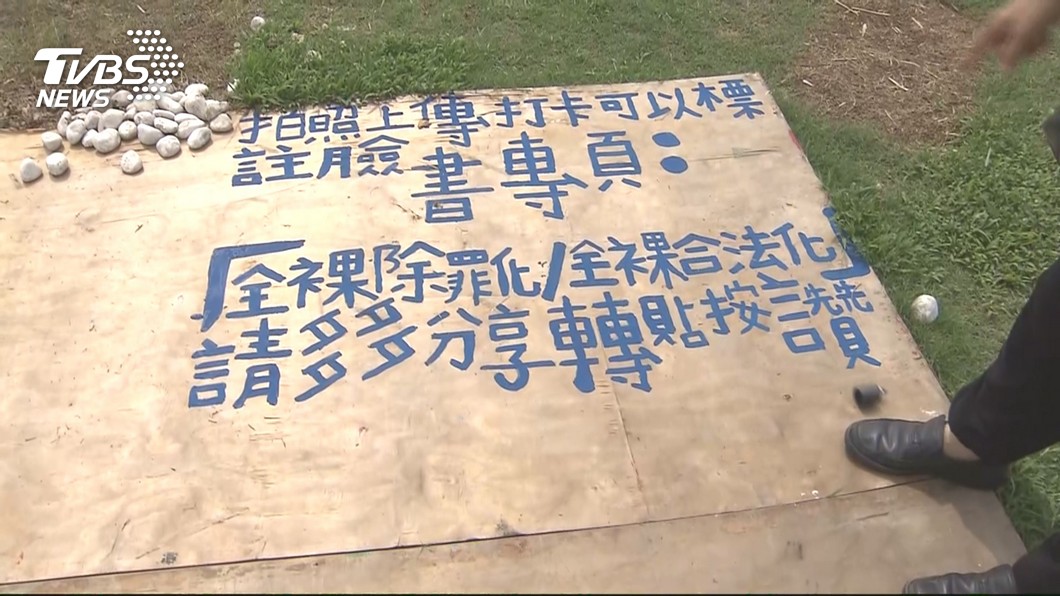 TVBS
NEWS
拍照上傳打卡可以標
註臉書專頁：
「全裸除罪化/全裸合法化」
請多多分享轉貼按讚